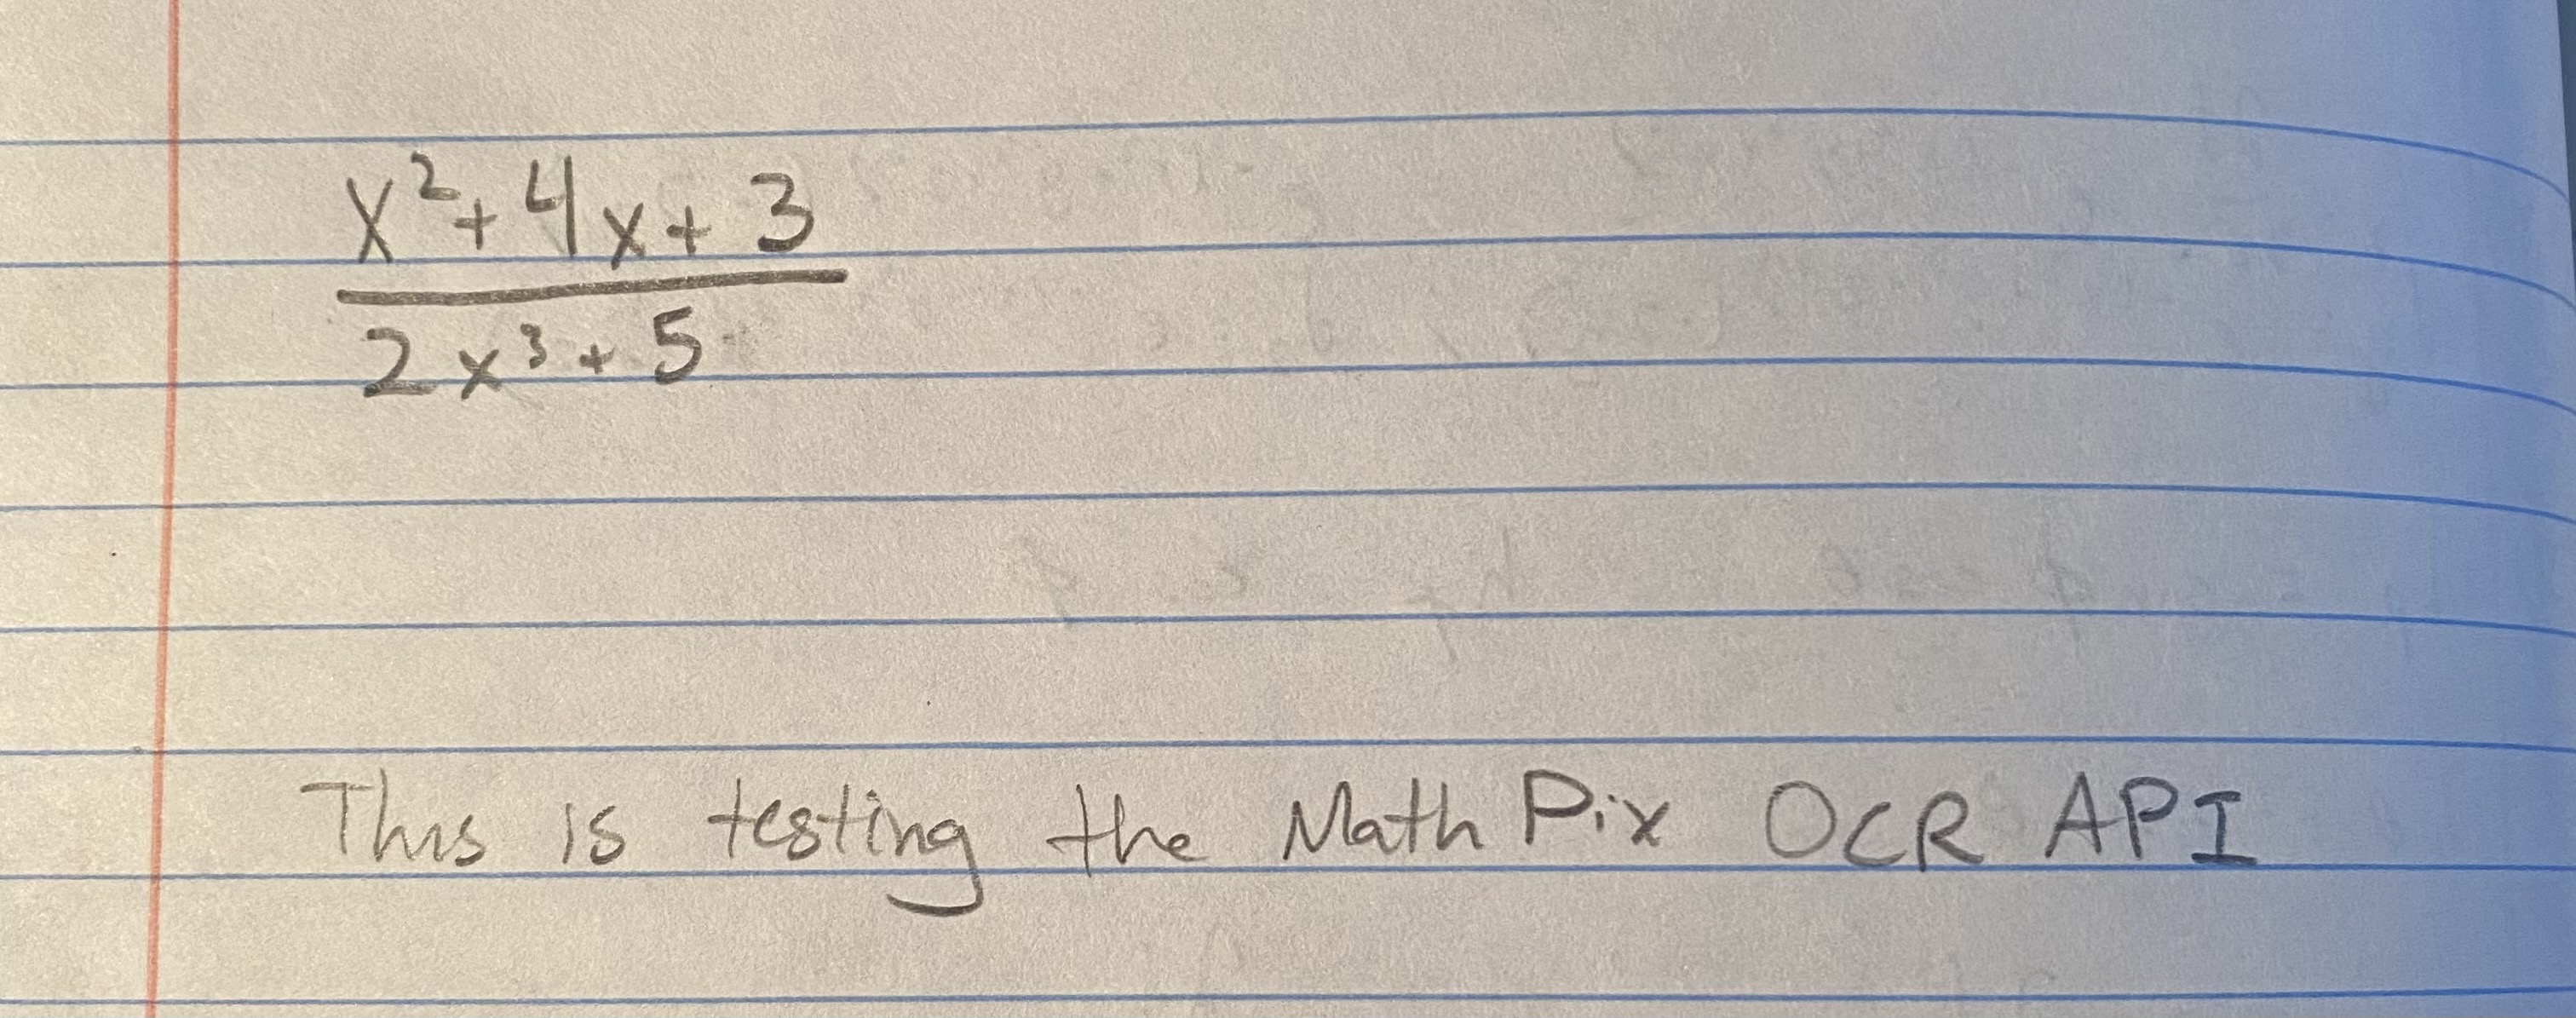 x²+4x+3
2x³+5
This is testing the Math Pix OCR API